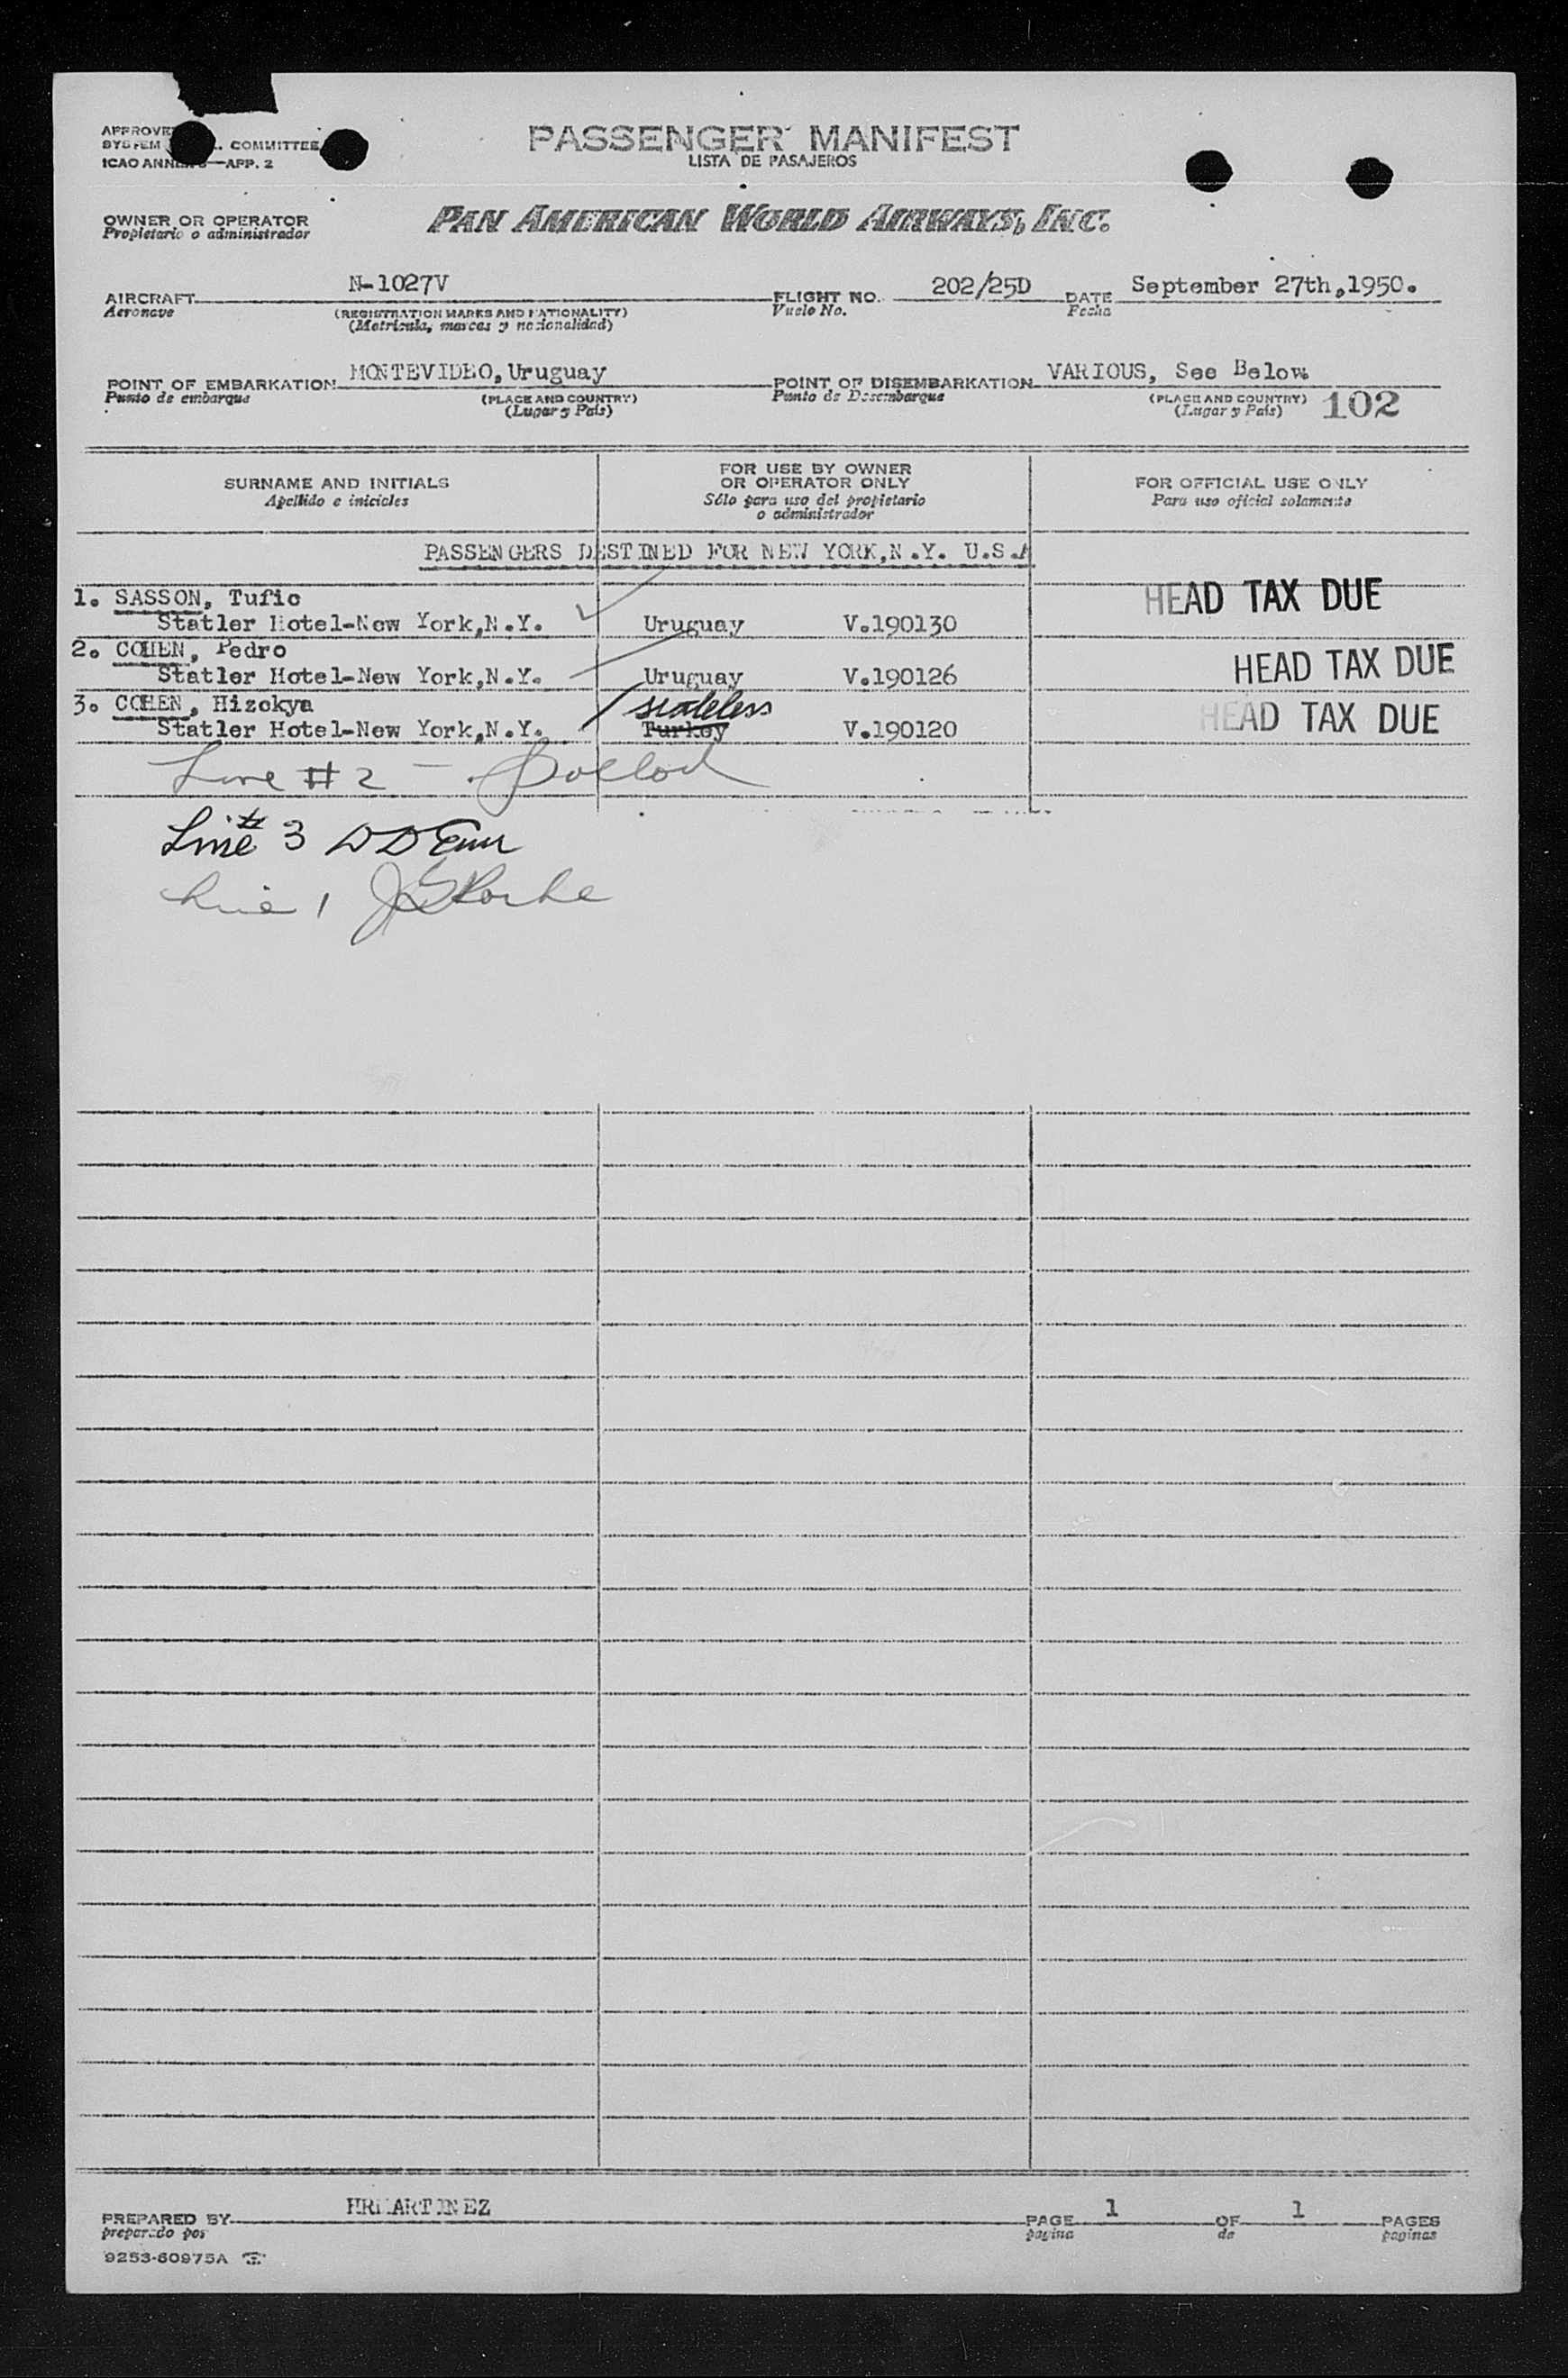 APPROVE
SYSTEM COMMITTEE
ICAO ANNEX —APP. 2
PASSENGER MANIFEST
LISTA DE PASAJEROS
OWNER OR OPERATOR
Propietario o administrador
PAN AMERICAN WORLD AIRWAYS, INC.
AIRCRAFT N-1027V FLIGHT NO. 202/25D DATE September 27th,1950.
Aeronave (REGISTRATION MARKS AND NATIONALITY) Vuelo No. Fecha
(Matrícula, marcas y nacionalidad)
POINT OF EMBARKATION MONTEVIDEO, Uruguay POINT OF DISEMBARKATION VARIOUS, See Below
Punto de embarque (PLACE AND COUNTRY) Punto de Desembarque (PLACE AND COUNTRY) 102
(Lugar y País) (Lugar y País)
SURNAME AND INITIALS FOR USE BY OWNER OR OPERATOR ONLY FOR OFFICIAL USE ONLY
Apellido e iniciales Sólo para uso del propietario o administrador Para uso oficial solamente
PASSENGERS DESTINED FOR NEW YORK,N.Y. U.S.A
1. SASSON, Tufic HEAD TAX DUE
Statler Hotel-New York,N.Y. Uruguay V.190130
2. COHEN, Pedro HEAD TAX DUE
Statler Hotel-New York,N.Y. Uruguay V.190126
3. COHEN, Hizokya stateless HEAD TAX DUE
Statler Hotel-New York,N.Y. Turkey V.190120
Line #2 -
Line # 3
Line 1
PREPARED BY HRMARTINEZ PAGE 1 OF 1 PAGES
preparado por pagina de paginas
9253-60975A